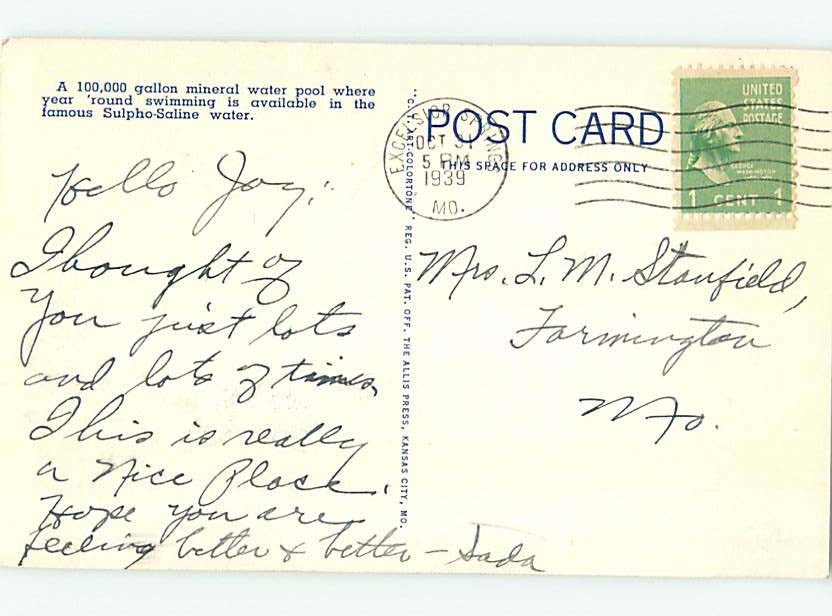 A 100,000 gallon mineral water pool where
year 'round swimming is available in the
famous Sulpho-Saline water.
Hello Joy:
Thought of
you just lots
and lots of times.
This is really
a Nice Place.
Hope you are
feeling better & better - Sada
"C.T. ART-COLORTONE" REG. U.S. PAT. OFF. THE ALLIS PRESS, KANSAS CITY, MO.
POST CARD
THIS SPACE FOR ADDRESS ONLY
EXCELSIOR SPRINGS
OCT 31
5 PM
1939
MO.
UNITED
STATES
POSTAGE
GEORGE
WASHINGTON
1 CENT 1
Mrs. L. M. Stanfield,
Farmington
Mo.